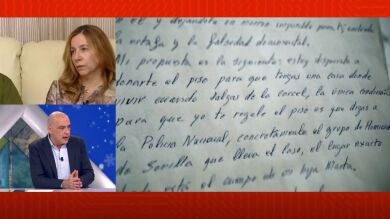 el y dejándote en menos
la estafa y la falsedad documental.
Mi propuesta es la siguiente: estoy dispuesto a
donarte el piso para que tengas una casa donde
vivir cuando salgas de la carcel, la única condición
para que yo te regale el piso es que digas a
la Policia Nacional, concretamente el grupo de Homici
de Sevilla que lleva el caso, el lugar exacto
está el cuerpo de mi hija Marta.